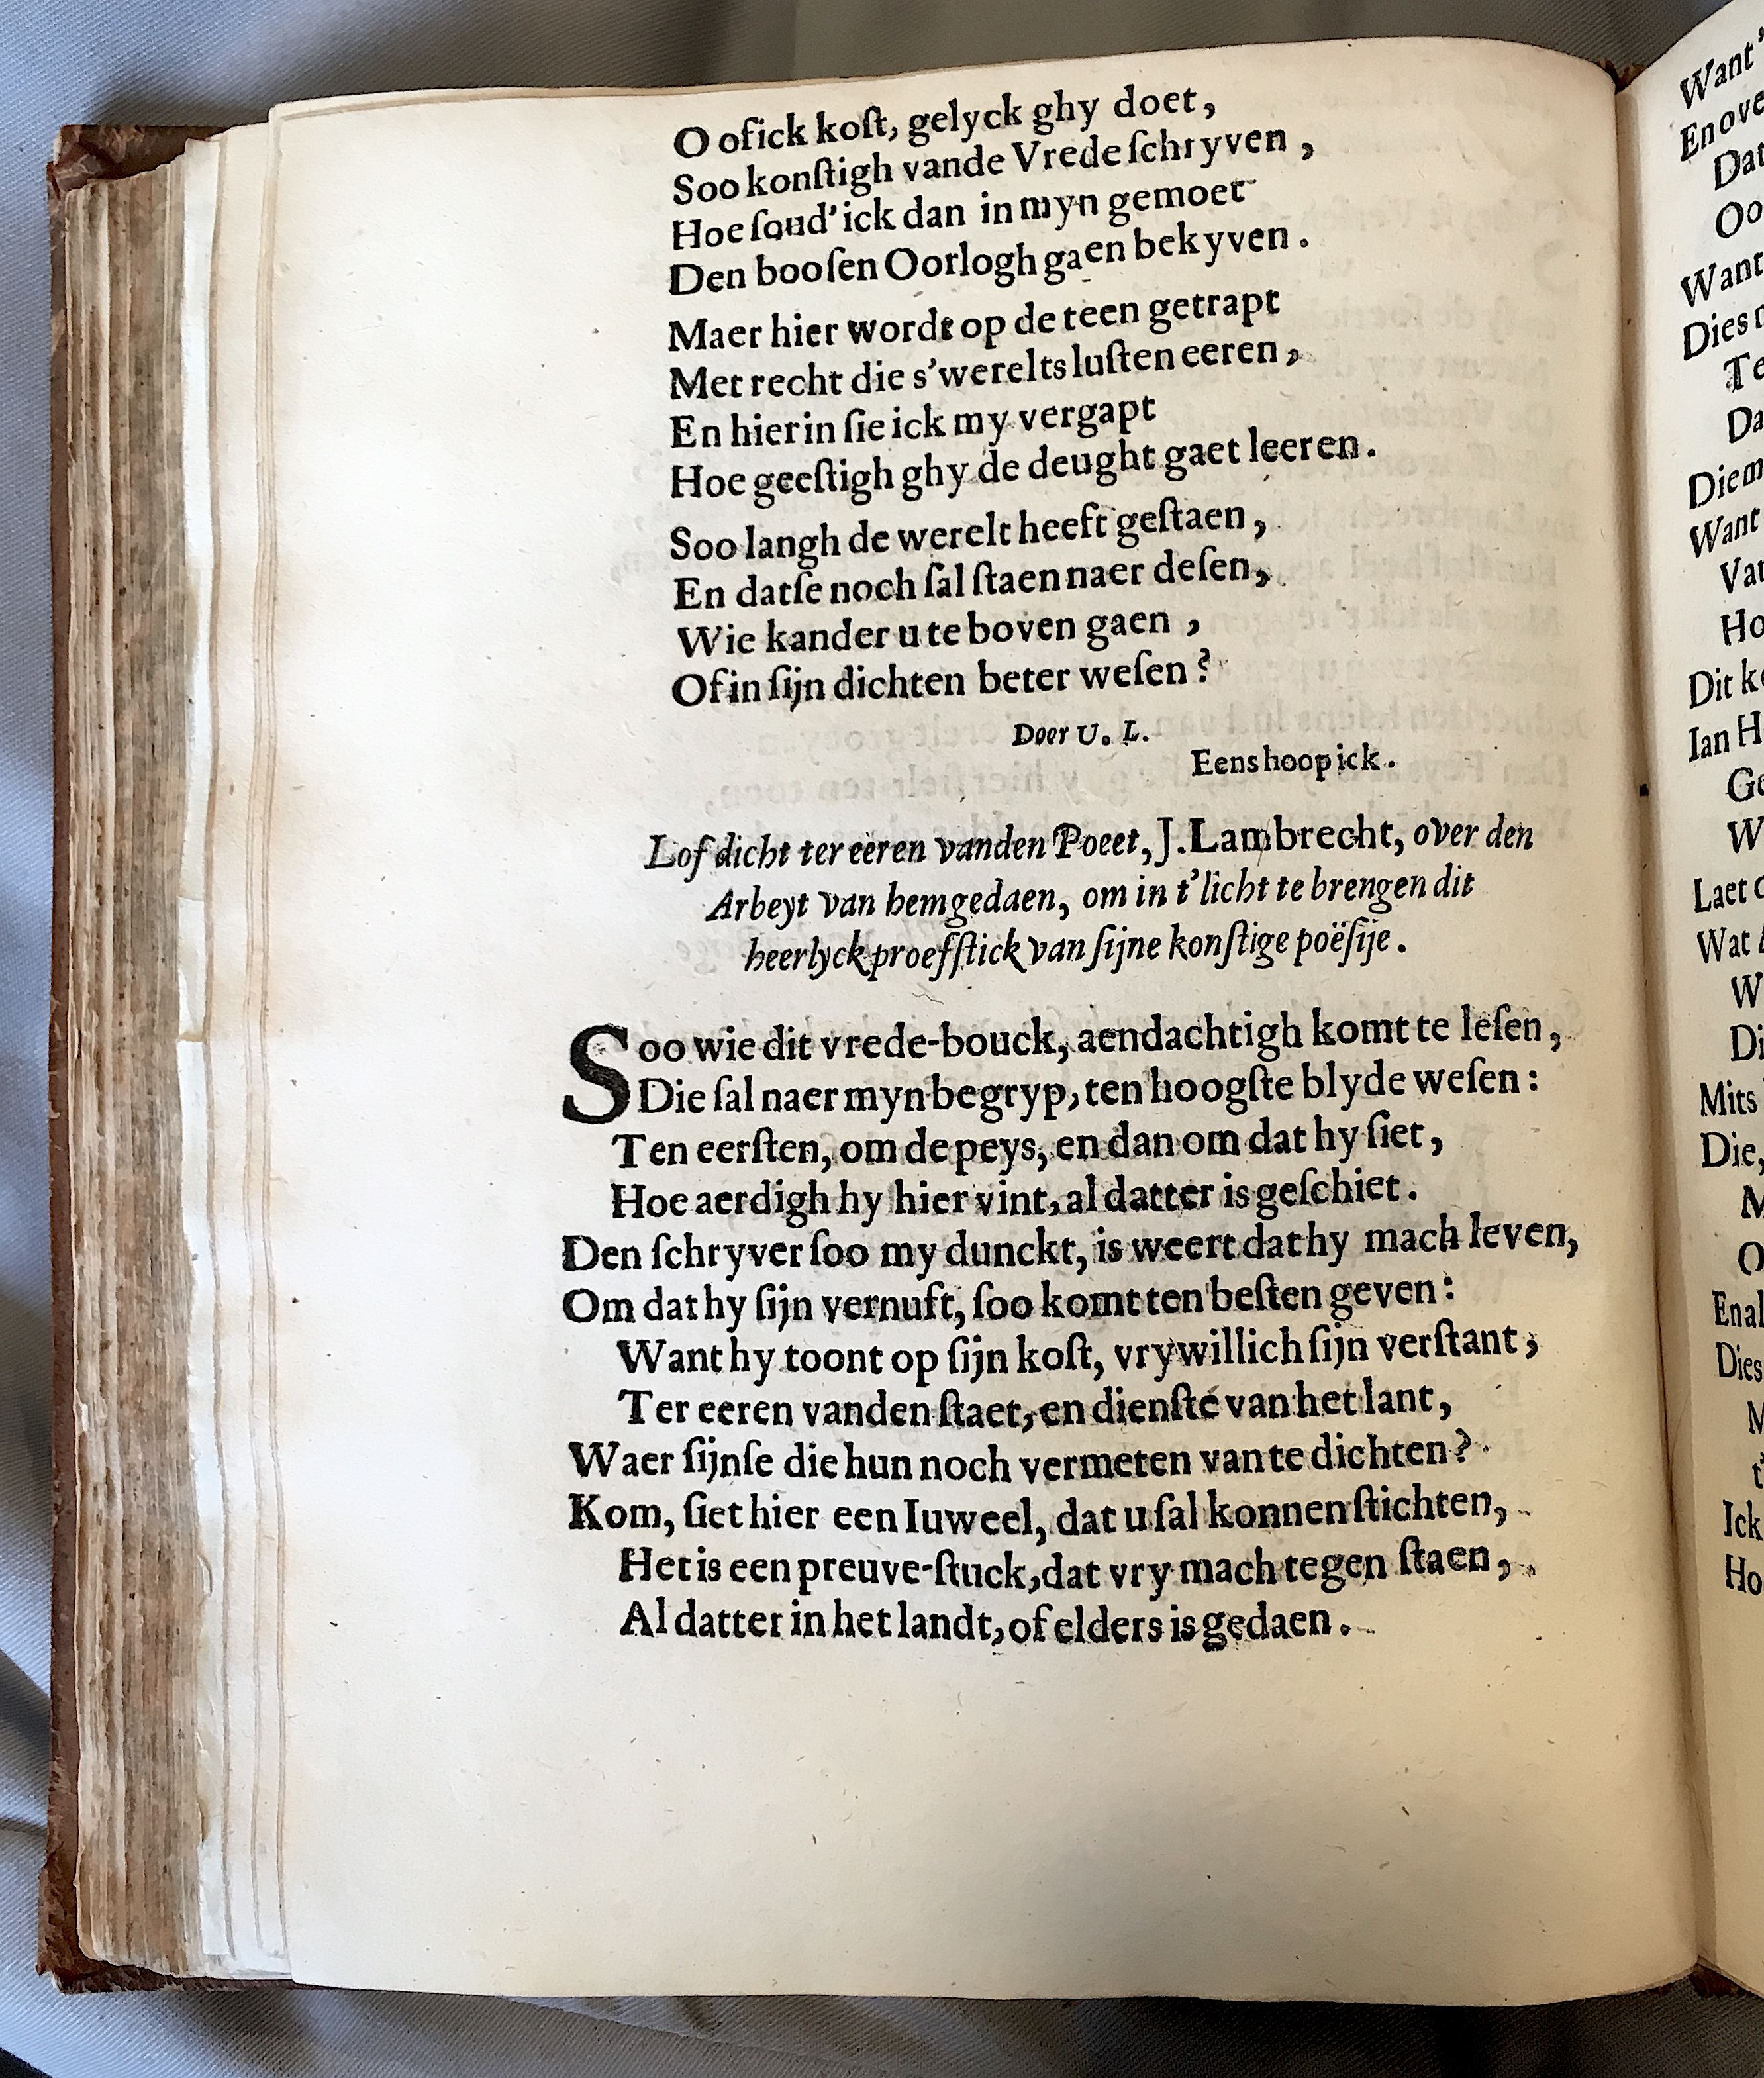 O of ick koſt, gelyck ghy doet,
Soo konſtigh vande Vrede ſchryven,
Hoe ſoud' ick dan in myn gemoet
Den booſen Oorlogh gaen bekyven.
Maer hier wordt op de teen getrapt
Met recht die s'werelts luſten eeren,
En hier in ſie ick my vergapt
Hoe geeſtigh ghy de deught gaet leeren.
Soo langh de werelt heeft geſtaen,
En datſe noch ſal ſtaen naer deſen,
Wie kander u te boven gaen,
Of in ſijn dichten beter weſen?
Door U. L.
Eens hoop ick.
Lof dicht ter eeren vanden Poeet, J. Lambrecht, over den
Arbeyt van hem gedaen, om in t'licht te brengen dit
heerlyck proefſtick van ſijne konſtige poëſije.
Soo wie dit vrede-bouck, aendachtigh komt te leſen,
Die ſal naer myn begryp, ten hoogſte blyde weſen:
Ten eerſten, om de peys, en dan om dat hy ſiet,
Hoe aerdigh hy hier vint, al datter is geſchiet.
Den ſchryver ſoo my dunckt, is weert dat hy mach leven,
Om dat hy ſijn vernuft, ſoo komt ten beſten geven:
Want hy toont op ſijn koſt, vrywillich ſijn verſtant,
Ter eeren vanden ſtaet, en dienſte van het lant,
Waer ſijnſe die hun noch vermeten van te dichten?
Kom, ſiet hier een Iuweel, dat u ſal konnen ſtichten,
Het is een preuve-ſtuck, dat vry mach tegen ſtaen,
Al datter in het landt, of elders is gedaen.
Want
Dat
Want
Want
Dit
Ian
Laet
Wat
Mits
Die,
Dies
Ick